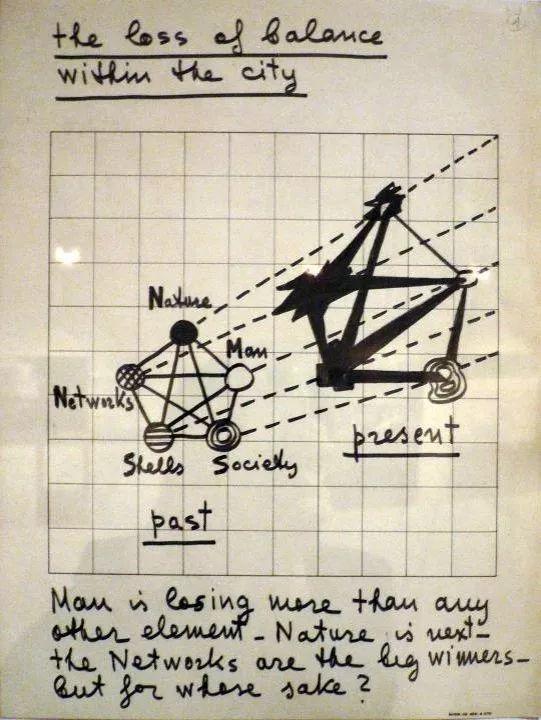 the loss of balance
within the city
Nature
Man
Networks
Shells Society
past
present
Man is losing more than any
other element - Nature is next -
the Networks are the big winners -
but for whose sake?